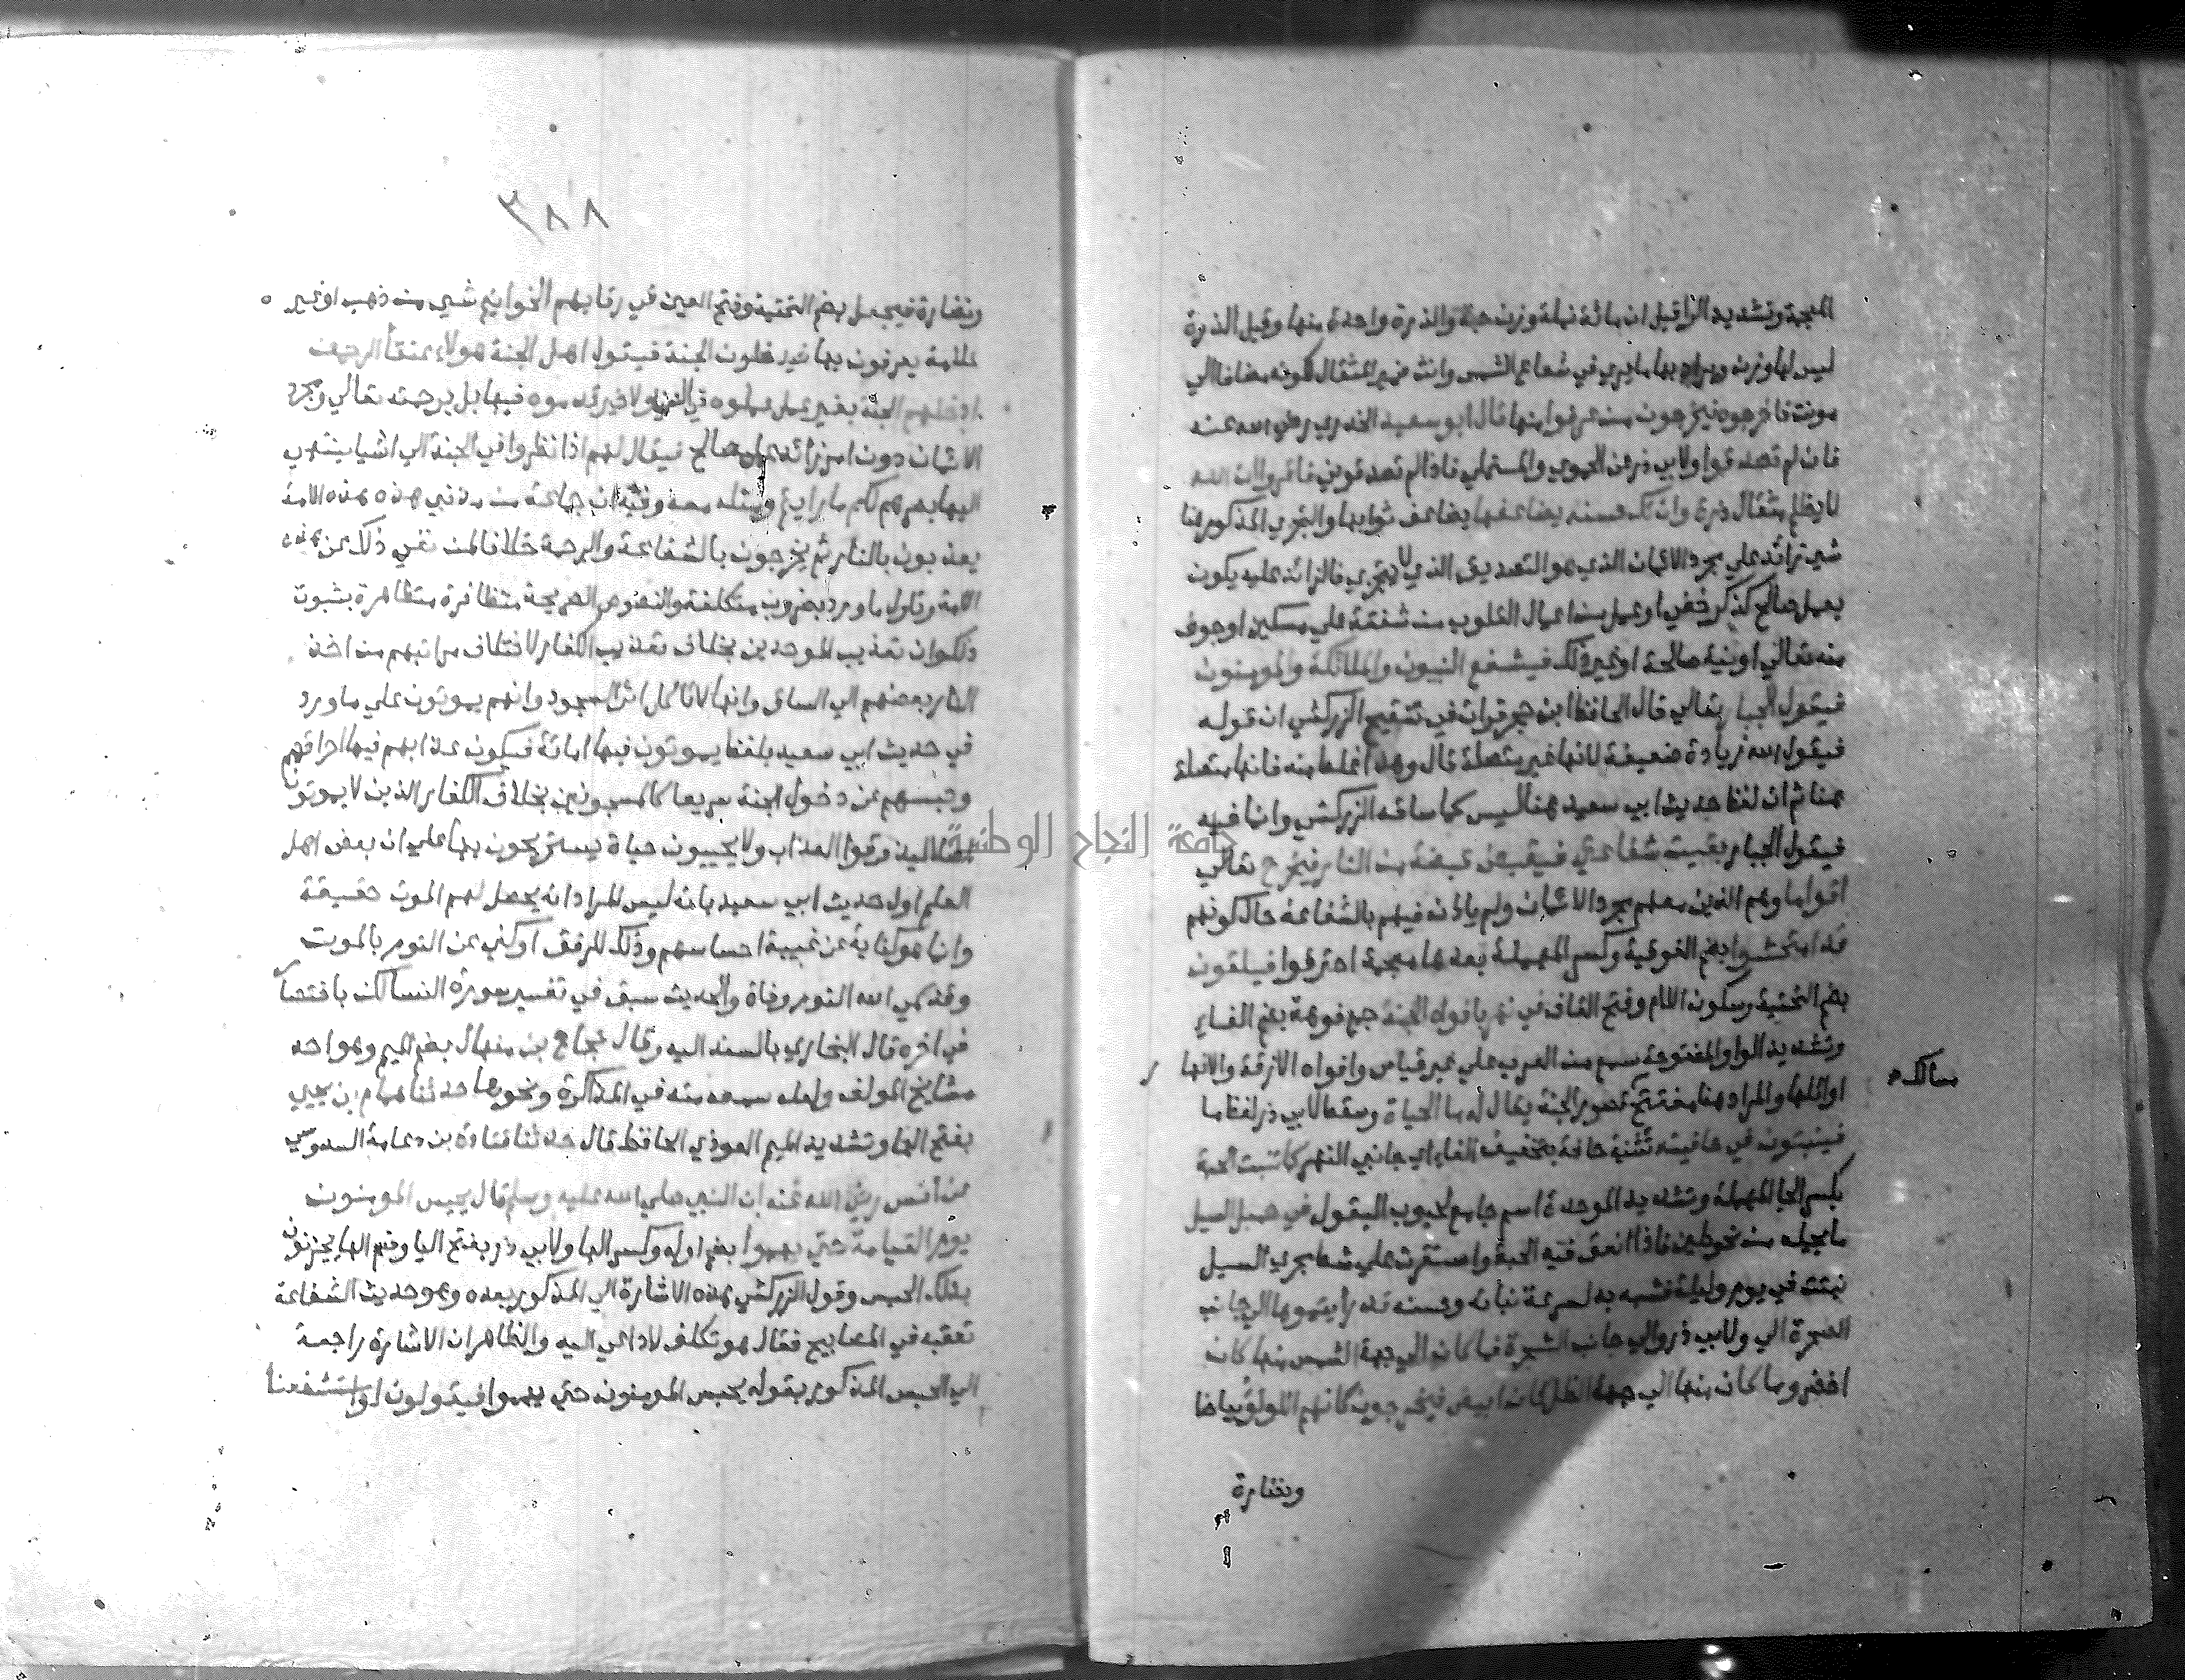 المعجمة وتشديد الرا قيل ان مائة نملة وزن حبة والذرة واحدة منها وقيل الذرة
ليس لها وزن ويراد بها ما يري في شعاع الشمس وانث ضمير المثقال لكونه مضافا الي
مونث فاخرجوه فيخرجون من عرفوا منها قال ابو سعيد الخدري رضي الله عنه
فان لم تصدقوا ولابي ذر عن الحموي والمستملي فاذا لم تصدقوني فاقروا ان الله
لا يظلم مثقال ذرة وان تك حسنة يضاعفها يضاعف ثوابها والتجزي المذكور هنا
شي زائد علي مجرد الايمان الذي هو التصديق الذي لا يتجزي فالزائد عليه يكون
بعمل صالح كذكر خفي او عمل من اعمال القلوب من شفقة علي مسكين او خوف
منه تعالي او نية صالحة او غير ذلك فيشفع النبيون والملائكة والمومنون
فيقول الجبار تعالي قال الحافظ ابن حجر قرات في تنقيح الزركشي ان قوله
فيقول الله زيادة ضعيفة لانها غير متصلة قال وهذا غلط منه فانها متصلة
هنا ثم ان لفظ حديث ابي سعيد هنا ليس كما ساقه الزركشي وانما فيه
فيقول الجبار بقيت شفاعتي فيقبض قبضة من النار فيخرج تعالي
اقواما وهم الذين معهم مجرد الايمان ولم ياذن فيهم بالشفاعة حال كونهم
قد امتحشوا بضم الفوقية وكسر المهملة بعدها معجمة احترقوا فيلقون
بضم التحتية وسكون اللام وفتح القاف في نهر بافواه الجنة جمع فوهة بضم الفاء
وتشديد الواو المفتوحة سمع من العرب علي غير قياس وافواه الازقة والانها ر
مسالك
اوائلها والمراد هنا مفتتح قصور الجنة يقال له ما الحياة وسقط لابي ذر لفظ ما
فينبتون في حافتيه تثنية حافة بتخفيف الفاء اي جانبي النهر كما تنبت الحبة
بكسر الحا المهملة وتشديد الموحدة اسم جامع لحبوب البقول في حميل السيل
ما يحمله من نحو طين فاذا اتفق فيه الحبة واستقرت علي شط مجري السيل
نبتت في يوم وليلة فشبه به لسرعة نباته وحسنه قد رايتموها الي جانب
الصخرة الي ولابي ذر والي جانب الشجرة فما كان الي جهة الشمس منها كان
اخضر وما كان منها الي جهة الظل كان ابيض فيخرجون كانهم اللولو بياضا
ونضارة
٣٨٨
ونضارة فيجعل بضم التحتية وفتح العين في رقابهم الخواتيم شي من ذهب او غير ه
علامة يعرفون بها فيدخلون الجنة فيقول اهل الجنة هولاء عتقا الرحمن
ادخلهم الجنة بغير عمل عملوه في الدنيا ولا خير قدموه فيها بل برحمته تعالي ومجرد
الايمان دون امر زائد عمل صالح فيقال لهم اذا نظروا في الجنة الي اشيا ينتهي
اليها بصرهم لكم ما رايتم ومثله معه وفيه ان جماعة من مذنبي هذه الامة
يعذبون بالنار ثم يخرجون بالشفاعة والرحمة خلافا لمن نفي ذلك عن هذه
الامة وتاول ما ورد بضروب متكلفة والنصوص الصريحة متظافرة متظاهرة بثبوت
ذلك وان تعذيب الموحدين بخلاف تعذيب الكفار لاختلاف مراتبهم من اخذ
النار بعضهم الي الساق وانها لا تاكل اثر السجود وانهم يموتون علي ما ورد
في حديث ابي سعيد بلفظ يموتون فيها اماتة فيكون عذابهم فيها احراقهم
وحبسهم عن دخول الجنة سريعا كالمسجونين بخلاف الكفار الذين لا يموتون
اصلا ليذوقوا العذاب ولا يحيون حياة يستريحون بها علي ان بعض اهل
العلم اول حديث ابي سعيد بانه ليس المراد انه يحصل لهم الموت حقيقة
وانما هو كناية عن غيبة احساسهم وذلك للرفق او كني عن النوم بالموت
وقد سمي الله النوم وفاة والحديث سبق في تفسير سورة النسا لكن باختصار
في اخره قال البخاري بالسند اليه وقال حجاج بن منهال بضم الميم وهو احد
مشايخ المولف ولعله سمعه منه في المذاكرة ونحوها حدثنا همام بن يحيي
بفتح الها وتشديد الميم العوذي الحافظ قال حدثنا قتادة بن دعامة السدوسي
عن انس رضي الله عنه ان النبي صلي الله عليه وسلم قال يحبس المومنون
يوم القيامة حتي يهموا بضم اوله وكسر الها ولابي ذر بفتح اليا وضم الها يحزنون
بذلك الحبس وقول الزركشي هذه الاشارة الي المذكور بعده وهو حديث الشفاعة
تعقبه في المصابيح فقال هو تكلف لا داعي اليه والظاهر ان الاشارة راجعة
الي الحبس المذكور بقوله يحبس المومنون حتي يهموا فيقولون لو استشفعنا
جامعة النجاح الوطنية